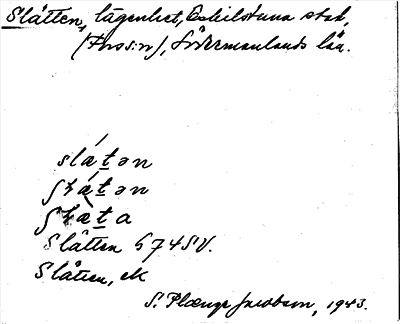 Slåtten, lägenhet, Eskilstuna stad,
(Fors:n), Södermanlands län.
slá̱tən
ʃƚátən
ʃƚæta
Slåtten G 74 SV.
Slåtten, ek
S. Plænge Jacobson, 1943.